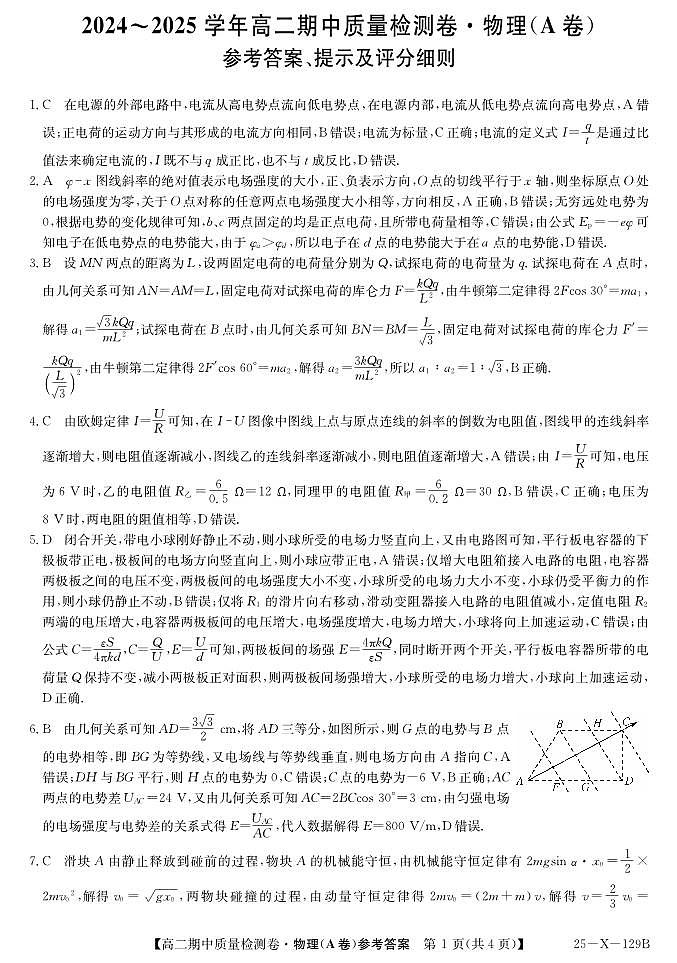 2024～2025 学年高二期中质量检测卷·物理(A 卷)
参考答案、提示及评分细则
1. C 在电源的外部电路中,电流从高电势点流向低电势点,在电源内部,电流从低电势点流向高电势点,A 错
误;正电荷的运动方向与其形成的电流方向相同,B 错误;电流为标量,C 正确;电流的定义式 I=q/t 是通过比
值法来确定电流的,I 既不与 q 成正比,也不与 t 成反比,D 错误.
2. A φ-x 图线斜率的绝对值表示电场强度的大小,正、负表示方向,O 点的切线平行于 x 轴,则坐标原点 O 处
的电场强度为零,关于 O 点对称的任意两点电场强度大小相等,方向相反,A 正确,B 错误;无穷远处电势为
0,根据电势的变化规律可知,b、c 两点固定的均是正点电荷,且所带电荷量相等,C 错误;由公式 Ep=-eφ 可
知电子在低电势点的电势能大,由于 φa>φd,所以电子在 d 点的电势能大于在 a 点的电势能,D 错误.
3. B 设 MN 两点的距离为 L,设两固定电荷的电荷量分别为 Q,试探电荷的电荷量为 q. 试探电荷在 A 点时,
由几何关系可知 AN=AM=L,固定电荷对试探电荷的库仑力 F=kQq/L²,由牛顿第二定律得 2Fcos 30°=ma₁,
解得 a₁=√3kQq/mL²;试探电荷在 B 点时,由几何关系可知 BN=BM=L/√3,固定电荷对试探电荷的库仑力 F′=
kQq/(L/√3)²,由牛顿第二定律得 2F′cos 60°=ma₂,解得 a₂=3kQq/mL²,所以 a₁∶a₂=1∶√3,B 正确.
4. C 由欧姆定律 I=U/R 可知,在 I-U 图像中图线上点与原点连线的斜率的倒数为电阻值,图线甲的连线斜率
逐渐增大,则电阻值逐渐减小,图线乙的连线斜率逐渐减小,则电阻值逐渐增大,A 错误;由 I=U/R 可知,电压
为 6 V 时,乙的电阻值 R乙=6/0.5 Ω=12 Ω,同理甲的电阻值 R甲=6/0.2 Ω=30 Ω,B 错误,C 正确;电压为
8 V 时,两电阻的阻值相等,D 错误.
5. D 闭合开关,带电小球刚好静止不动,则小球所受的电场力竖直向上,又由电路图可知,平行板电容器的下
极板带正电,极板间的电场方向竖直向上,则小球应带正电,A 错误;仅增大电阻箱接入电路的电阻,电容器
两极板之间的电压不变,两极板间的电场强度大小不变,小球所受的电场力大小不变,小球仍受平衡力的作
用,则小球仍静止不动,B 错误;仅将 R₁ 的滑片向右移动,滑动变阻器接入电路的电阻值减小,定值电阻 R₂
两端的电压增大,电容器两极板间的电压增大,电场强度增大,电场力增大,小球将向上加速运动,C 错误;由
公式 C=εS/4πkd,C=Q/U,E=U/d 可知,两极板间的场强 E=4πkQ/εS,同时断开两个开关,平行板电容器所带的电
荷量 Q 保持不变,减小两极板正对面积,则两极板间场强增大,小球所受的电场力增大,小球向上加速运动,
D 正确.
6. B 由几何关系可知 AD=3√3/2 cm,将 AD 三等分,如图所示,则 G 点的电势与 B 点
的电势相等,即 BG 为等势线,又电场线与等势线垂直,则电场方向由 A 指向 C,A
错误;DH 与 BG 平行,则 H 点的电势为 0,C 错误;C 点的电势为-6 V,B 正确;AC
两点的电势差 UAC=24 V,又由几何关系可知 AC=2BCcos 30°=3 cm,由匀强电场
的电场强度与电势差的关系式得 E=UAC/AC,代入数据解得 E=800 V/m,D 错误.
B H C
A F G D
7. C 滑块 A 由静止释放到碰前的过程,物块 A 的机械能守恒,由机械能守恒定律有 2mgsin α·x₀=1/2×
2mv₀²,解得 v₀=√gx₀,两物块碰撞的过程,由动量守恒定律得 2mv₀=(2m+m)v,解得 v=2/3 v₀=
【高二期中质量检测卷·物理(A 卷)参考答案 第 1 页(共 4 页)】 25-X-129B